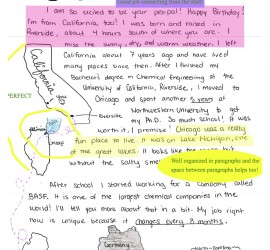 I am so excited to be your penpal! Happy Birthday!
I'm from California, too! I was born and raised in
Riverside, about 4 hours south of where you are. I
miss the sunny, dry, and warm weather! I left
California about 7 years ago and have lived
many places since then. After I finished my
Bachelors degree in Chemical Engineering at the
University of California, Riverside, I moved to
Chicago and spent another 5 years at
Northwestern University to get
my Ph.D. So much school! It was
worth it, I promise! Chicago was a really
fun place to live. It was on Lake Michigan, one
of the great lakes.
without the salty
After school I started working for a company called
BASF. It is one of the largest chemical companies in the
world! I'll tell you more about that in a bit. My job right
now is unique because it changes every 8 months.
California
you
Riverside
PERFECT
Well organized in paragraphs and the
space between paragraphs helps too!
Germany